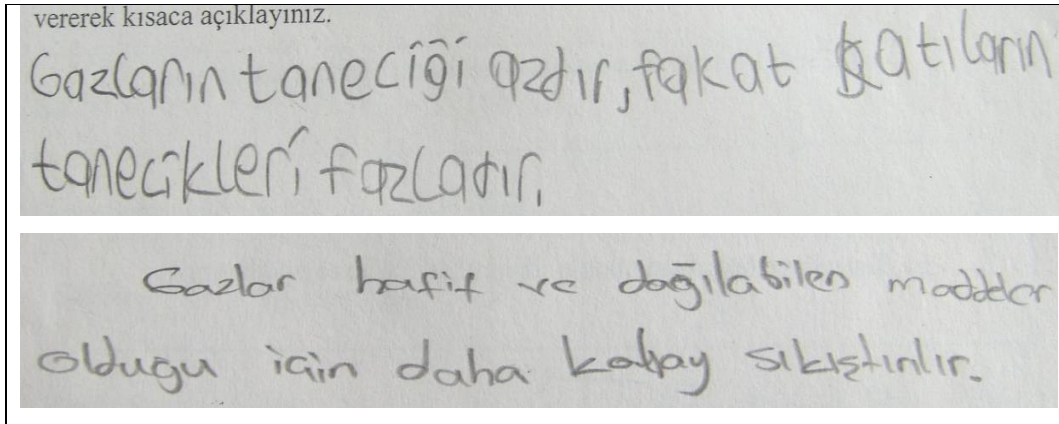 vererek kısaca açıklayınız.
Gazların taneciği azdır, fakat katıların
tanecikleri fazladır.
Gazlar hafif ve dağılabilen maddeler
olduğu için daha kolay sıkıştırılır.